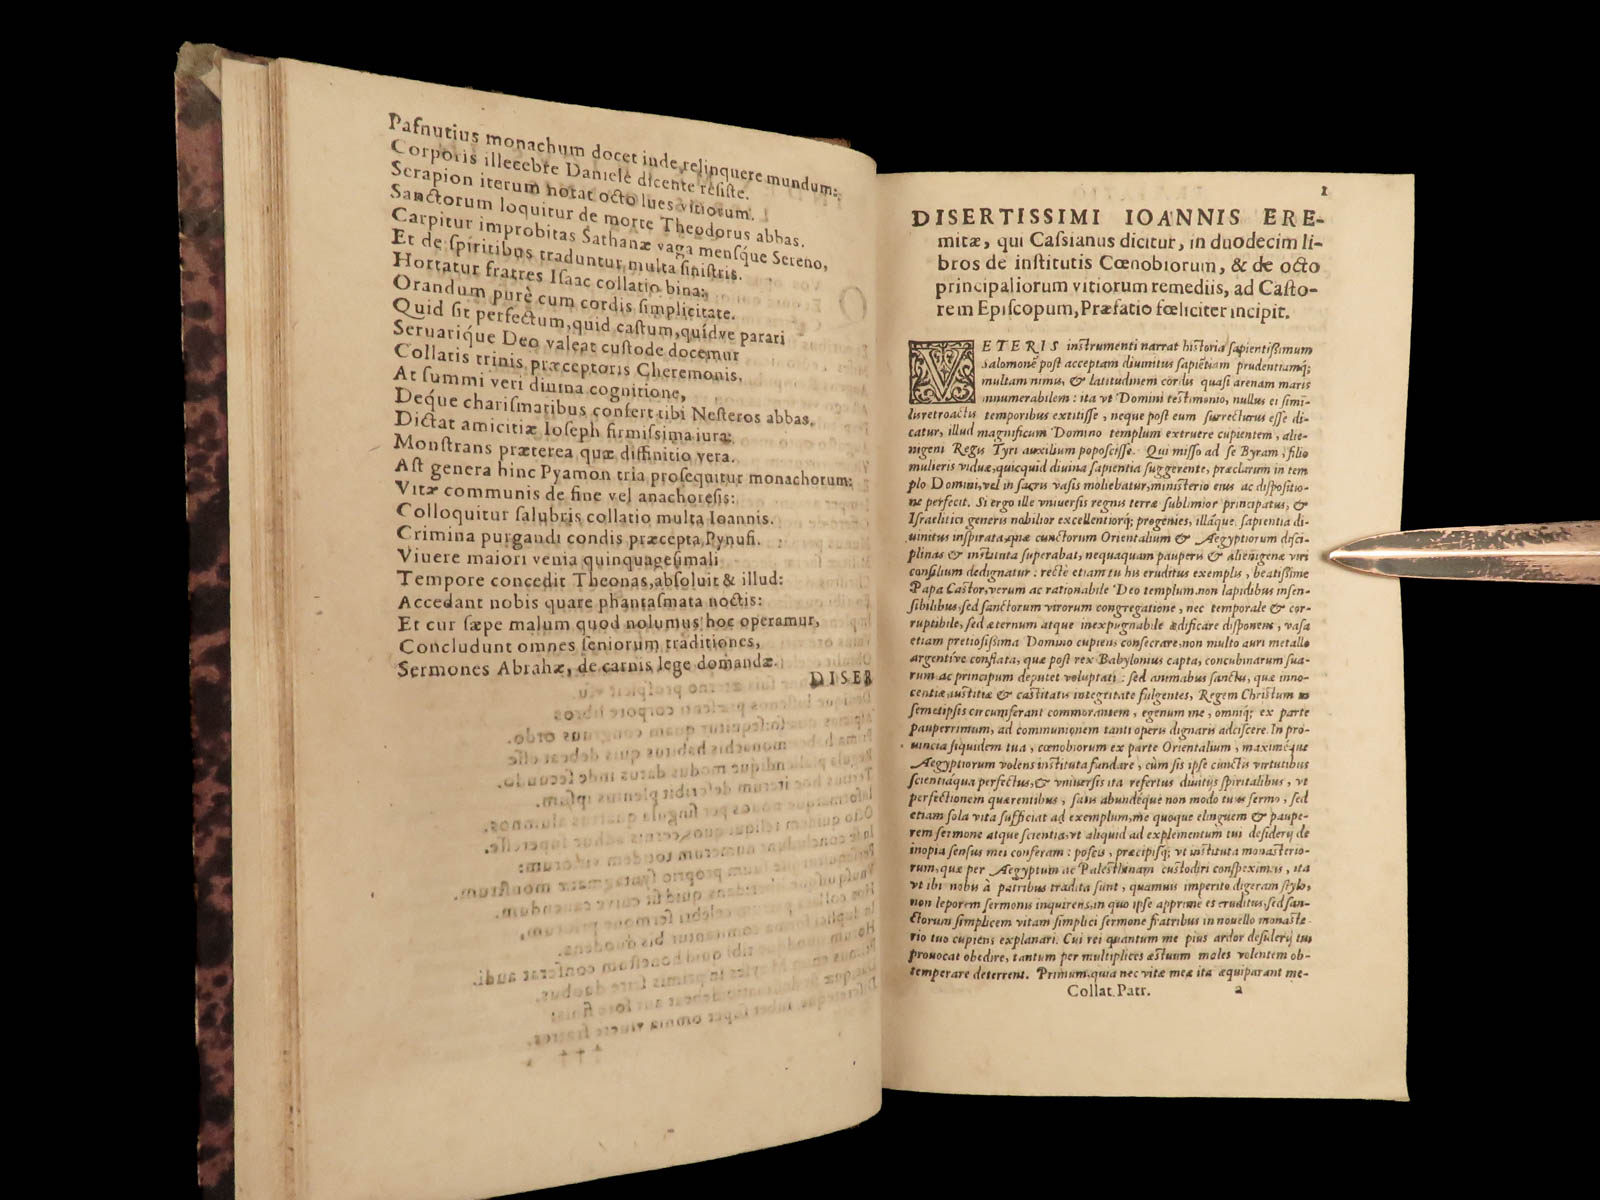 Pafnutius monachum docet inde relinquere mundum:
Corporis illecebrę Daniele dicente resiste.
Serapion iterum notat octo lues vitiorum.
Sanctorum loquitur de morte Theodorus abbas.
Carpitur improbitas Sathanæ vaga mensq́ue Sereno,
Et de spiritibus traduntur multa sinistris.
Hortatur fratres Isaac collatio bina:
Orandum purè cum cordis simplicitate.
Quid sit perfectum, quid castum, quídve parari
Seruariq́ue Deo valeat custode docemur
Collatis trinis præceptoris Cheremonis.
At summi veri diuina cognitione,
Deq́ue charismatibus confert tibi Nesteros abbas.
Dictat amicitiæ Ioseph firmissima iura:
Monstrans præterea quæ diffinitio vera.
Ast genera hinc Pyamon tria prosequitur monachorum:
Vitæ communis de fine vel anachoresis:
Colloquitur salubris collatio multa Ioannis.
Crimina purgandi condis præcepta Pynufi.
Viuere maiori venia quinquagesimali
Tempore concedit Theonas, absoluit & illud:
Accedant nobis quare phantasmata noctis:
Et cur sæpe malum quod nolumus hoc operamur,
Concludunt omnes seniorum traditiones,
Sermones Abrahæ, de carnis lege domandæ.
DISER
1
DISERTISSIMI IOANNIS ERE-
mitæ, qui Cassianus dicitur, in duodecim li-
bros de institutis Cœnobiorum, & de octo
principaliorum vitiorum remediis, ad Casto-
rem Episcopum, Præfatio fœliciter incipit.
VETERIS instrumenti narrat historia sapientissimum
Salomonẽ post acceptam diuinitus sapiẽtiam prudentiamq́;
multam nimis, & latitudinem cordis quasi arenam maris
innumerabilem: ita vt Domini testimonio, nullus ei simi-
lis retroactis temporibus extitisse, neque post eum surrecturus esse di-
catur, illud magnificum Domino templum extruere cupientem, alie-
nigeni Regis Tyri auxilium poposcisse. Qui misso ad se Hyram, filio
mulieris viduæ, quicquid diuina sapientia suggerente, præclarum in tem
plo Domini, vel in sacris vasis moliebatur, ministerio eius ac dispositio-
ne perfecit. Si ergo ille vniuersis regnis terræ sublimior principatus, &
Israelitici generis nobilior excellentiorq́; progenies, illáque sapientia di-
uinitus inspirata, quæ cunctorum Orientalium & Aegyptiorum disci-
plinas & instituta superabat, nequaquam pauperis & alienigenæ viri
consilium dedignatur: rectè etiam tu his eruditus exemplis, beatissime
Papa Castor, verum ac rationabile Deo templum, non lapidibus insen-
sibilibus, sed sanctorum virorum congregatione, nec temporale & cor-
ruptibile, sed æternum atque inexpugnabile ædificare disponens, vasa
etiam pretiosissima Domino cupiens consecrare, non multo auri metallo
argentíve conflata, quæ post rex Babylonius capta, concubinarum sua-
rum ac principum deputet voluptati: sed animabus sanctis, quæ inno-
centiæ, iustitiæ & castitatis integritate fulgentes, Regem Christum in
semetipsis circumferant commorantem, egenum me, omniq́; ex parte
pauperrimum, ad communionem tanti operis dignaris adciscere. In pro-
uincia siquidem tua, cœnobiorum ex parte Orientalium, maximéque
Aegyptiorum volens instituta fundare, cùm sis ipse cunctis virtutibus
scientiáqua perfectus, & vniuersis ita refertus diuitijs spiritalibus, vt
perfectionem quærentibus, satis abundéque non modo tuus sermo, sed
etiam sola vita sufficiat ad exemplum, me quoque elinguem & paupe-
rem sermone atque scientia, vt aliquid ad explementum tui desiderij de
inopia sensus mei conferam: poscis, præcipisq́; vt instituta monasterio-
rum, quæ per Aegyptum ac Palestinam custodiri conspeximus, ita
vt ibi nobis à patribus tradita sunt, quamuis imperito digeram stylo,
non leporem sermonis inquirens, in quo ipse apprime es eruditus, sed san-
ctorum simplicem vitam simplici sermone fratribus in nouello monaste-
rio tuo cupiens explanari. Cui rei quantum me pius ardor desiderij tui
prouocat obedire, tantum per multiplices æstuum moles volentem ob-
temperare deterrent. Primum, quia nec vitæ meæ ita æquiparant me-
Collat. Patr. a